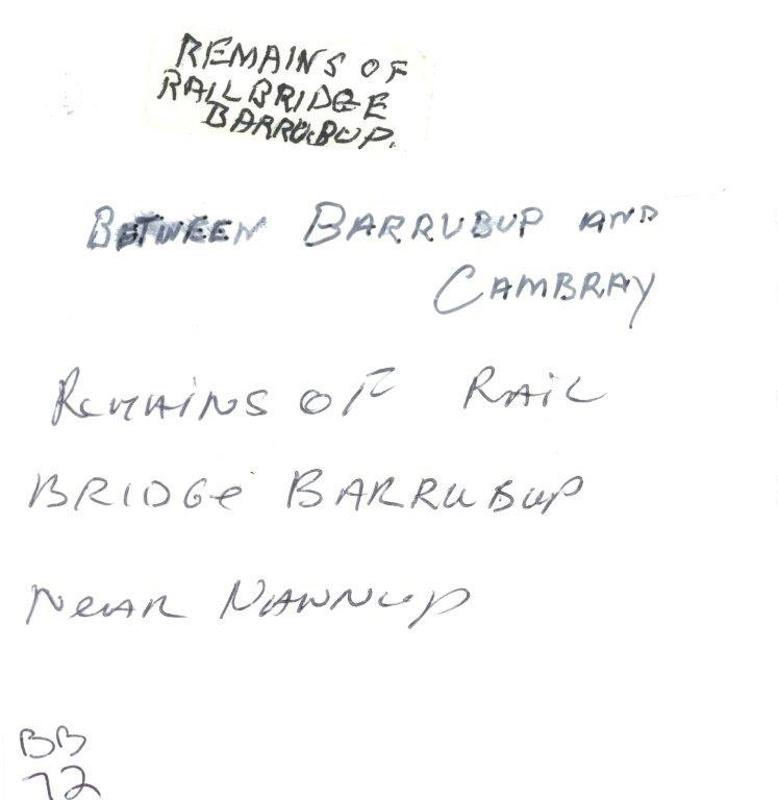 REMAINS OF
RAILBRIDGE
BARRUBUP.
BETWEEN BARRUBUP AND
CAMBRAY
REMAINS OF RAIL
BRIDGe BARRUBUP
NeAR NANNUP
BB
72